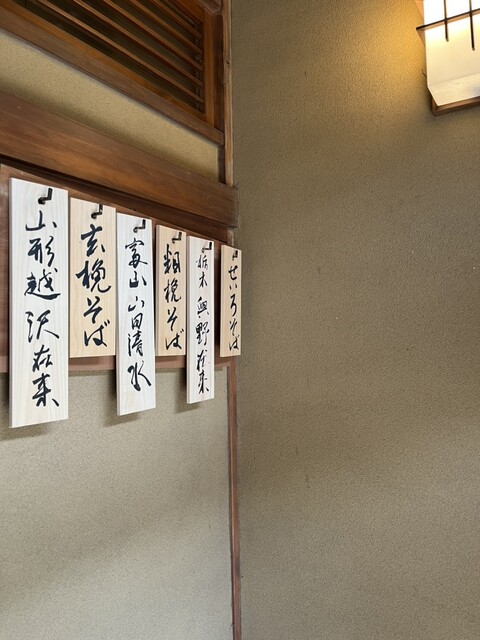 せいろそば
栃木與野在来
粗挽そば
富山山田清水
玄挽そば
山形越沢在来